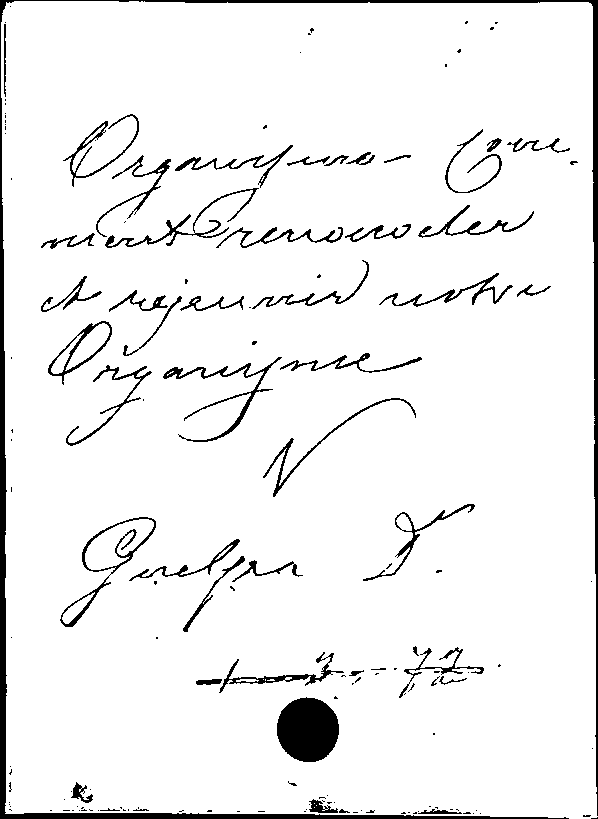 Organisme Com-
ment renover
et rajeunir notre
Organisme
V
Guelpa Dr.